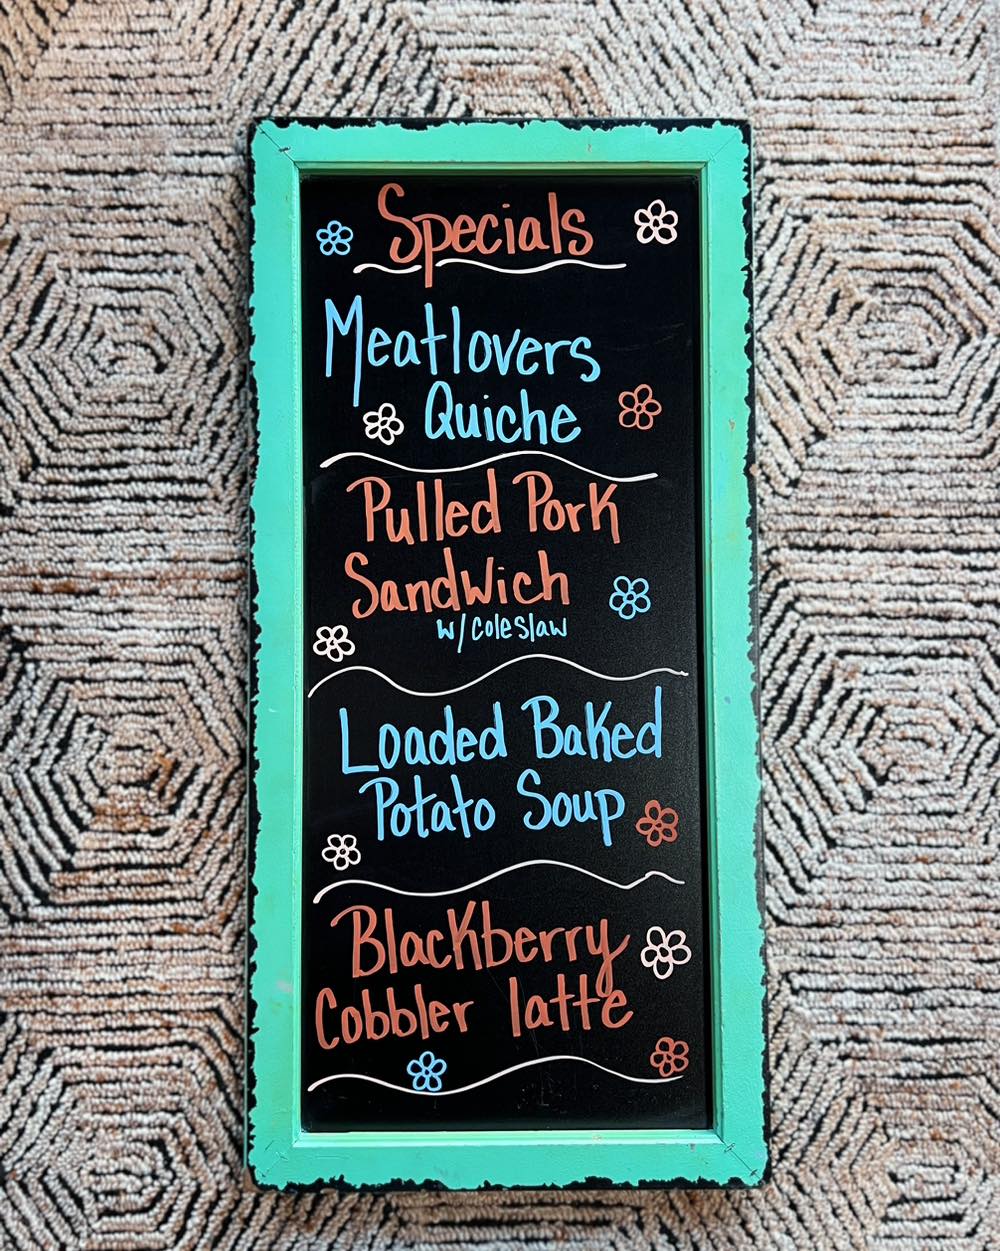 Specials
Meatlovers
Quiche
Pulled Pork
Sandwich
w/coleslaw
Loaded Baked
Potato Soup
Blackberry
Cobbler latte